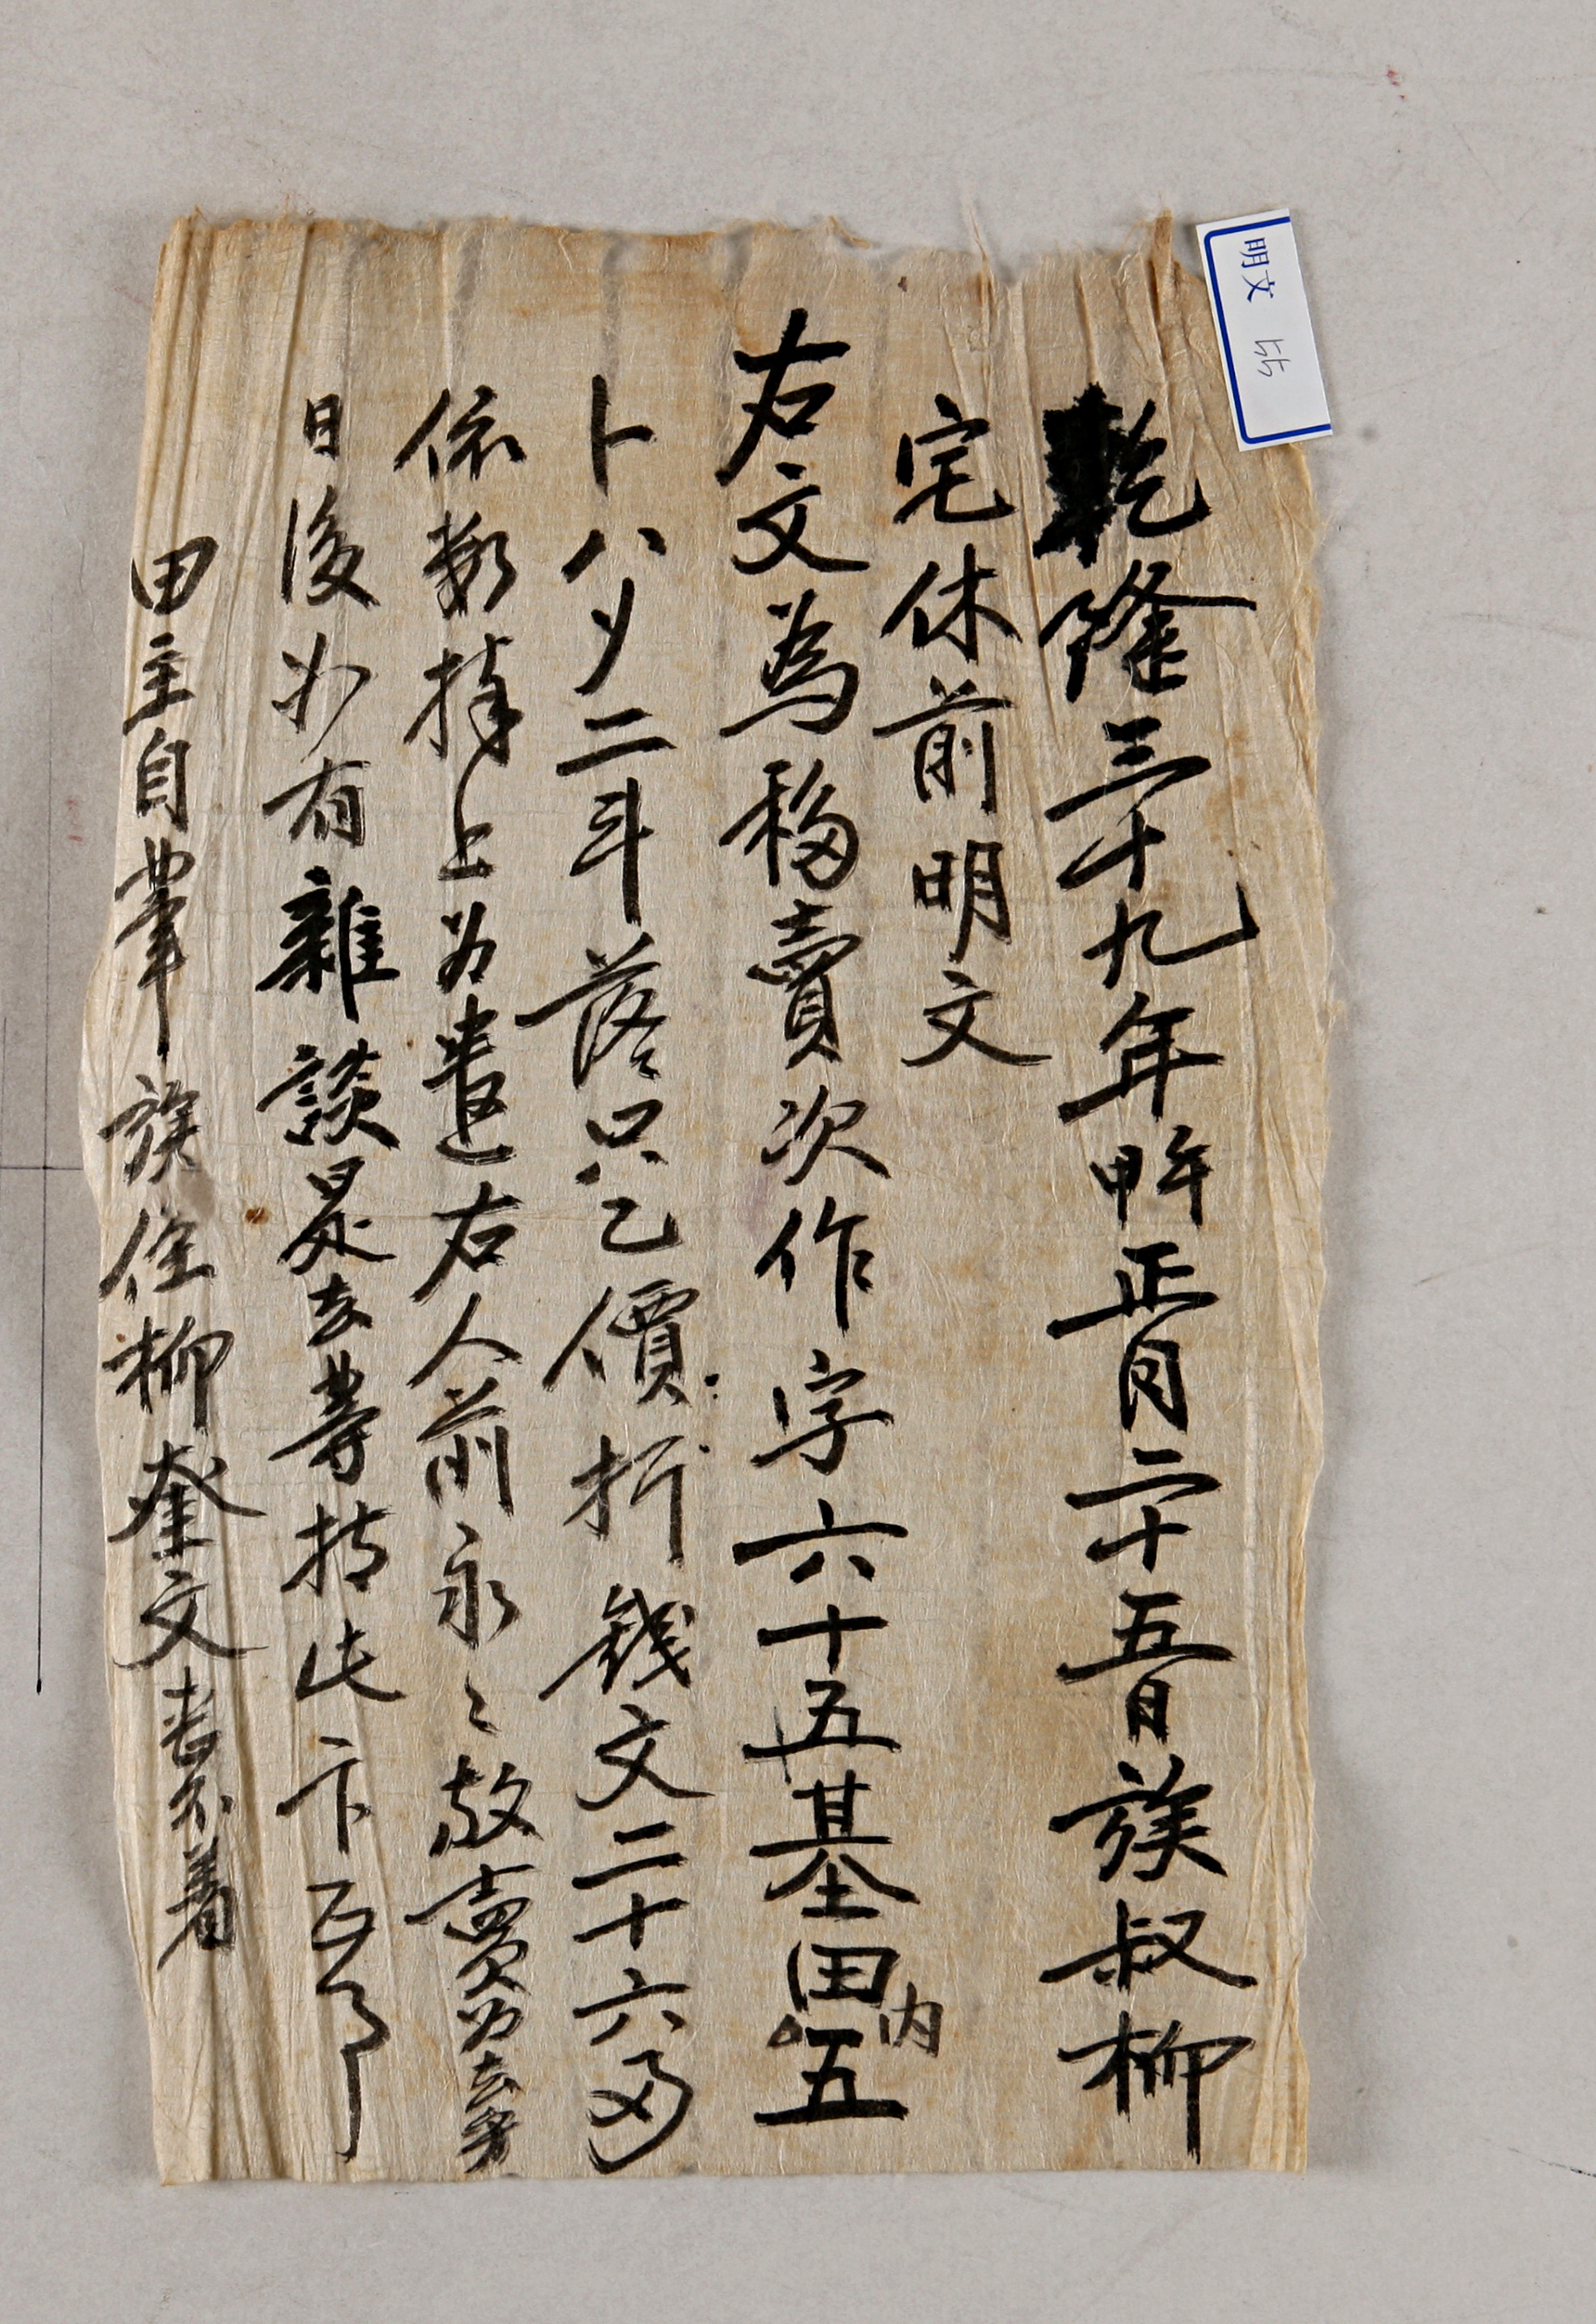 明文 55
乾隆三十九年甲午正月二十五日族叔柳
宅休前明文
右文爲移賣次作字六十五基田内五
卜八夕二斗落只乙價折錢文二十六両
依數捧上爲遣右人前永〻放賣爲去乎
日後如有雜談是去等持此卞正事
田主自筆族侄柳奎文 着